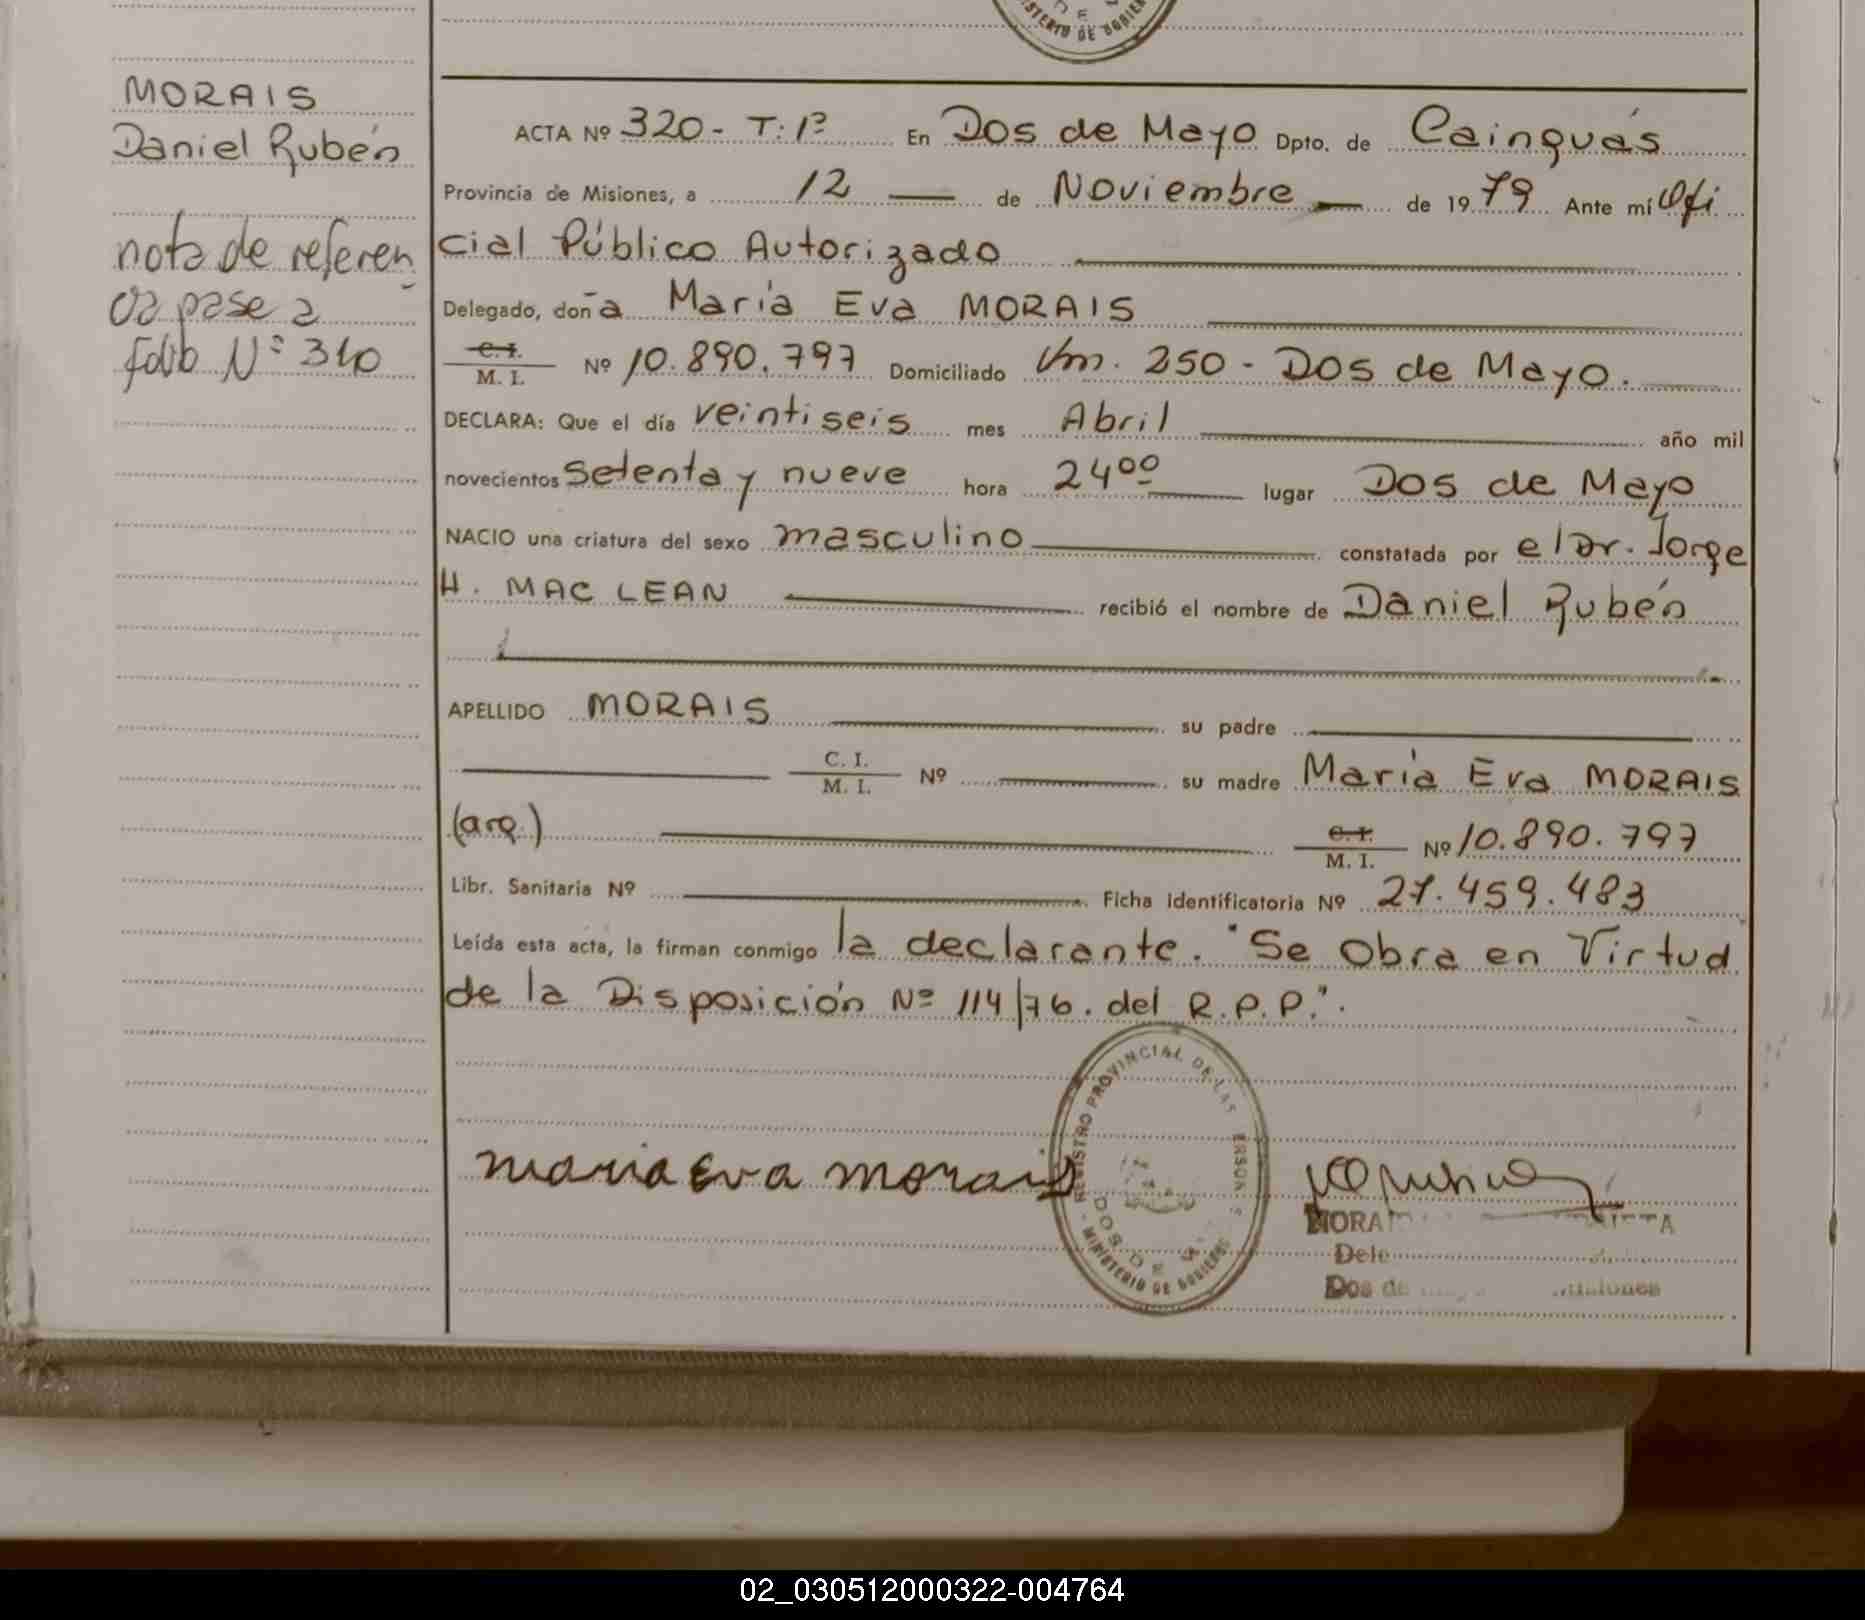 MORAIS
Daniel Rubén
nota de referen
cia pase a
folio Nº 340
STERIO DE GOBIER
ACTA Nº 320 - T: 1º En Dos de Mayo Dpto. de Cainguás
Provincia de Misiones, a 12 de Noviembre de 1979 Ante mí Ofi
cial Público Autorizado
Delegado, doña María Eva MORAIS
C. I.
M. I. Nº 10.890.797 Domiciliado Km. 250 - Dos de Mayo.
DECLARA: Que el día veintiseis mes Abril año mil
novecientos setenta y nueve hora 24ºº lugar Dos de Mayo
NACIO una criatura del sexo masculino constatada por el Dr. Jorge
H. MAC LEAN recibió el nombre de Daniel Rubén
APELLIDO MORAIS su padre
C. I.
M. I. Nº su madre María Eva MORAIS
(arg.) C. I.
M. I. Nº 10.890.797
Libr. Sanitaria Nº Ficha Identificatoria Nº 27.459.483
Leída esta acta, la firman conmigo la declarante. "Se Obra en Virtud
de la Disposición Nº 114/76. del R.P.P.".
maria Eva morais
REGISTRO PROVINCIAL DE LAS PERSONAS
DOS DE
MINISTERIO DE GOBIERNO
Dos de Misiones
02_030512000322-004764